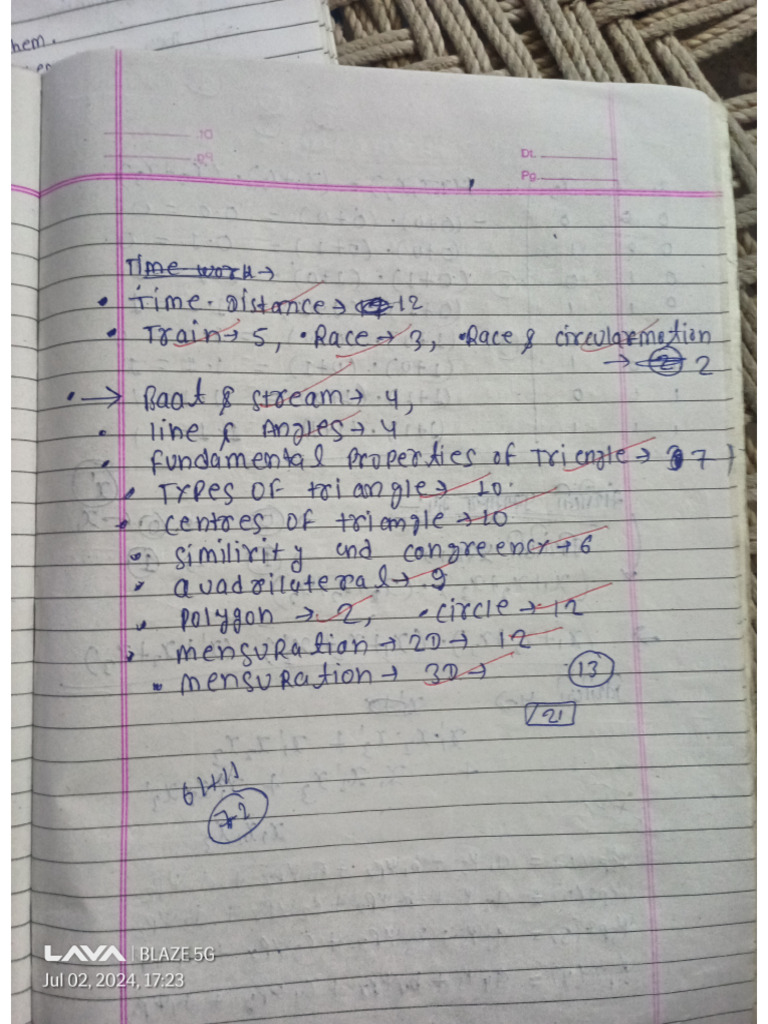 hem.
Dt.
Pg.
Time work →
• Time. Distance → 12
• Train → 5, • Race → 3, • Race & circularmotion
→ 2
• → Baat & stream → .4,
• line & Angles → .4
• fundamental properties of Triengle → 7
• Types of triangle → 10.
• centres of triangle → 10
• similirity and congreency → 6
• Quadrilateral → .9
• polygon → .2, • circle → 12
• mensuration → 2D → 12
• mensuration → 3D → 13
21
61+11
72
LAVA | BLAZE 5G
Jul 02, 2024, 17:23